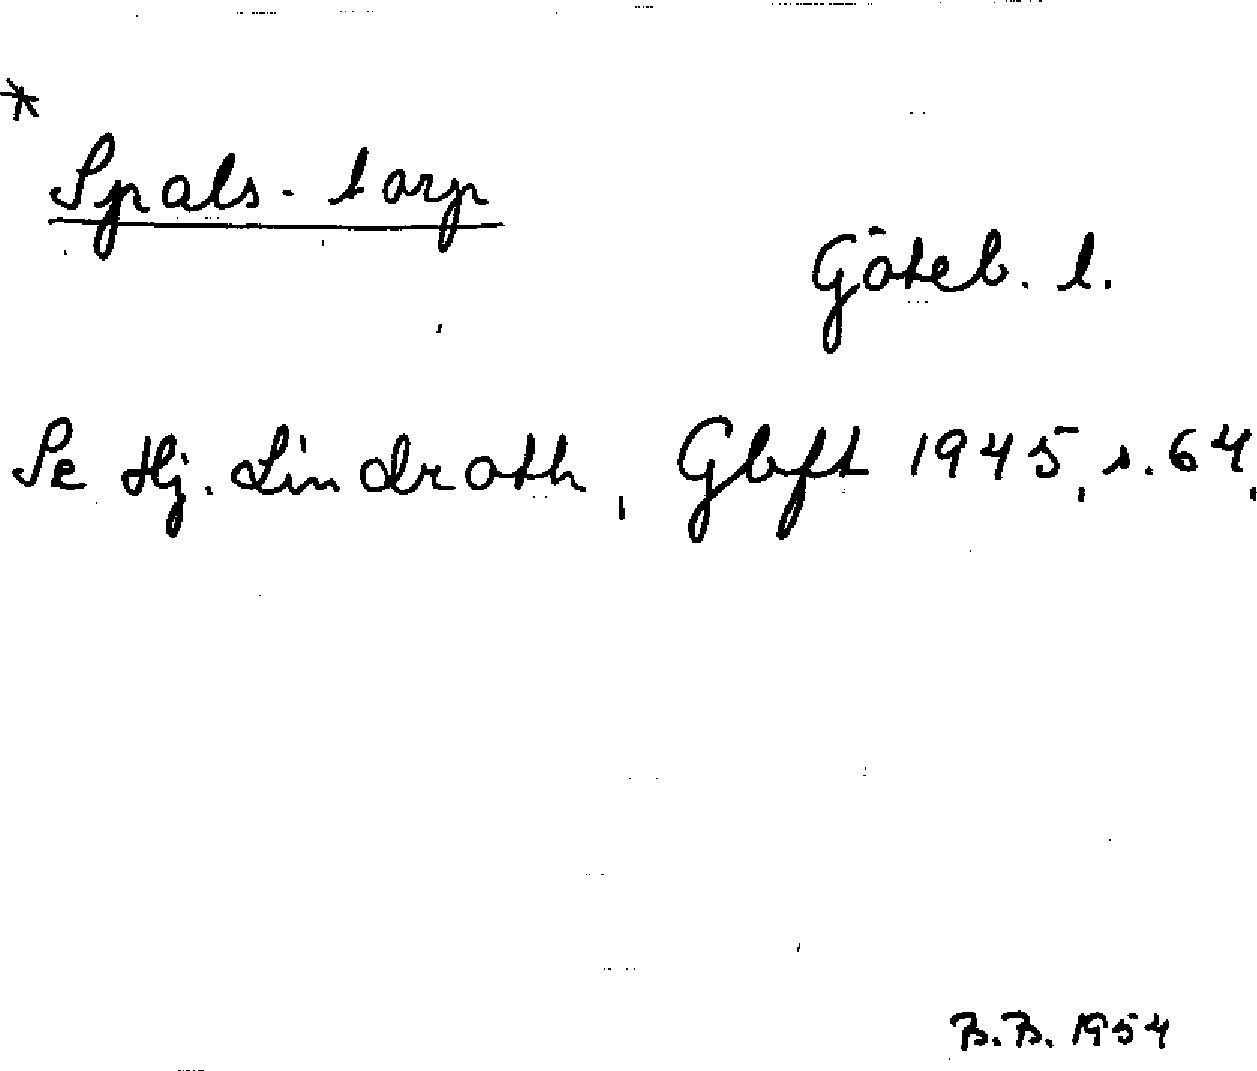 *
Spals-torp
Göteb. l.
Se Hj. Lindroth, Gbft 1945, s. 64.
B.B. 1954